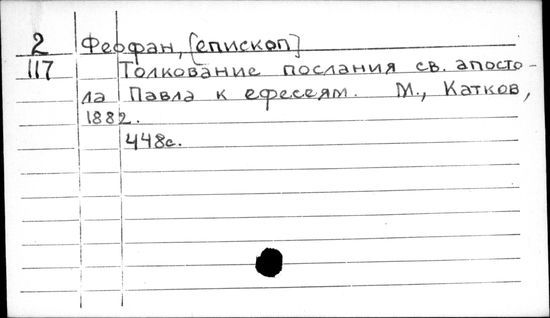 2 Феофан, [епископ]
117 Толкование послания св. апосто-
ла Павла к ефесеям. М., Катков,
1882.
448с.